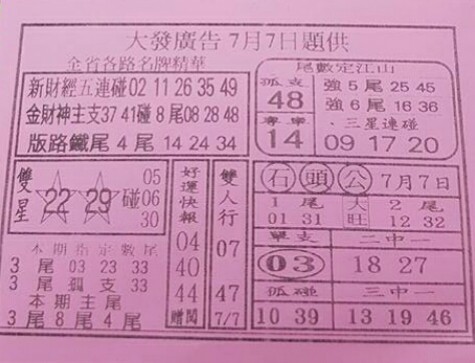 大發廣告7月7日題供
全省各路名牌精華
新財經五連碰02 11 26 35 49
金財神主支37 41碰 8 尾08 28 48
版路鐵尾 4 尾 14 24 34
尾數定江山
孤支
48
強 5 尾 25 45
強 6 尾 16 36
14
·三星連碰
09 17 20
雙星
22 29 碰
05
06
30
本期指定數尾
3 尾 03 23 33
3 尾孤支 33
本期主尾
3 尾 8 尾 4 尾
好運快報
04
40
44
贈閱
雙人行
07
47
7/7
石頭公 7月7日
1 尾
01 31
大旺
2 尾
12 32
單支
03
二中一
18 27
孤碰
10 39
三中一
13 19 46